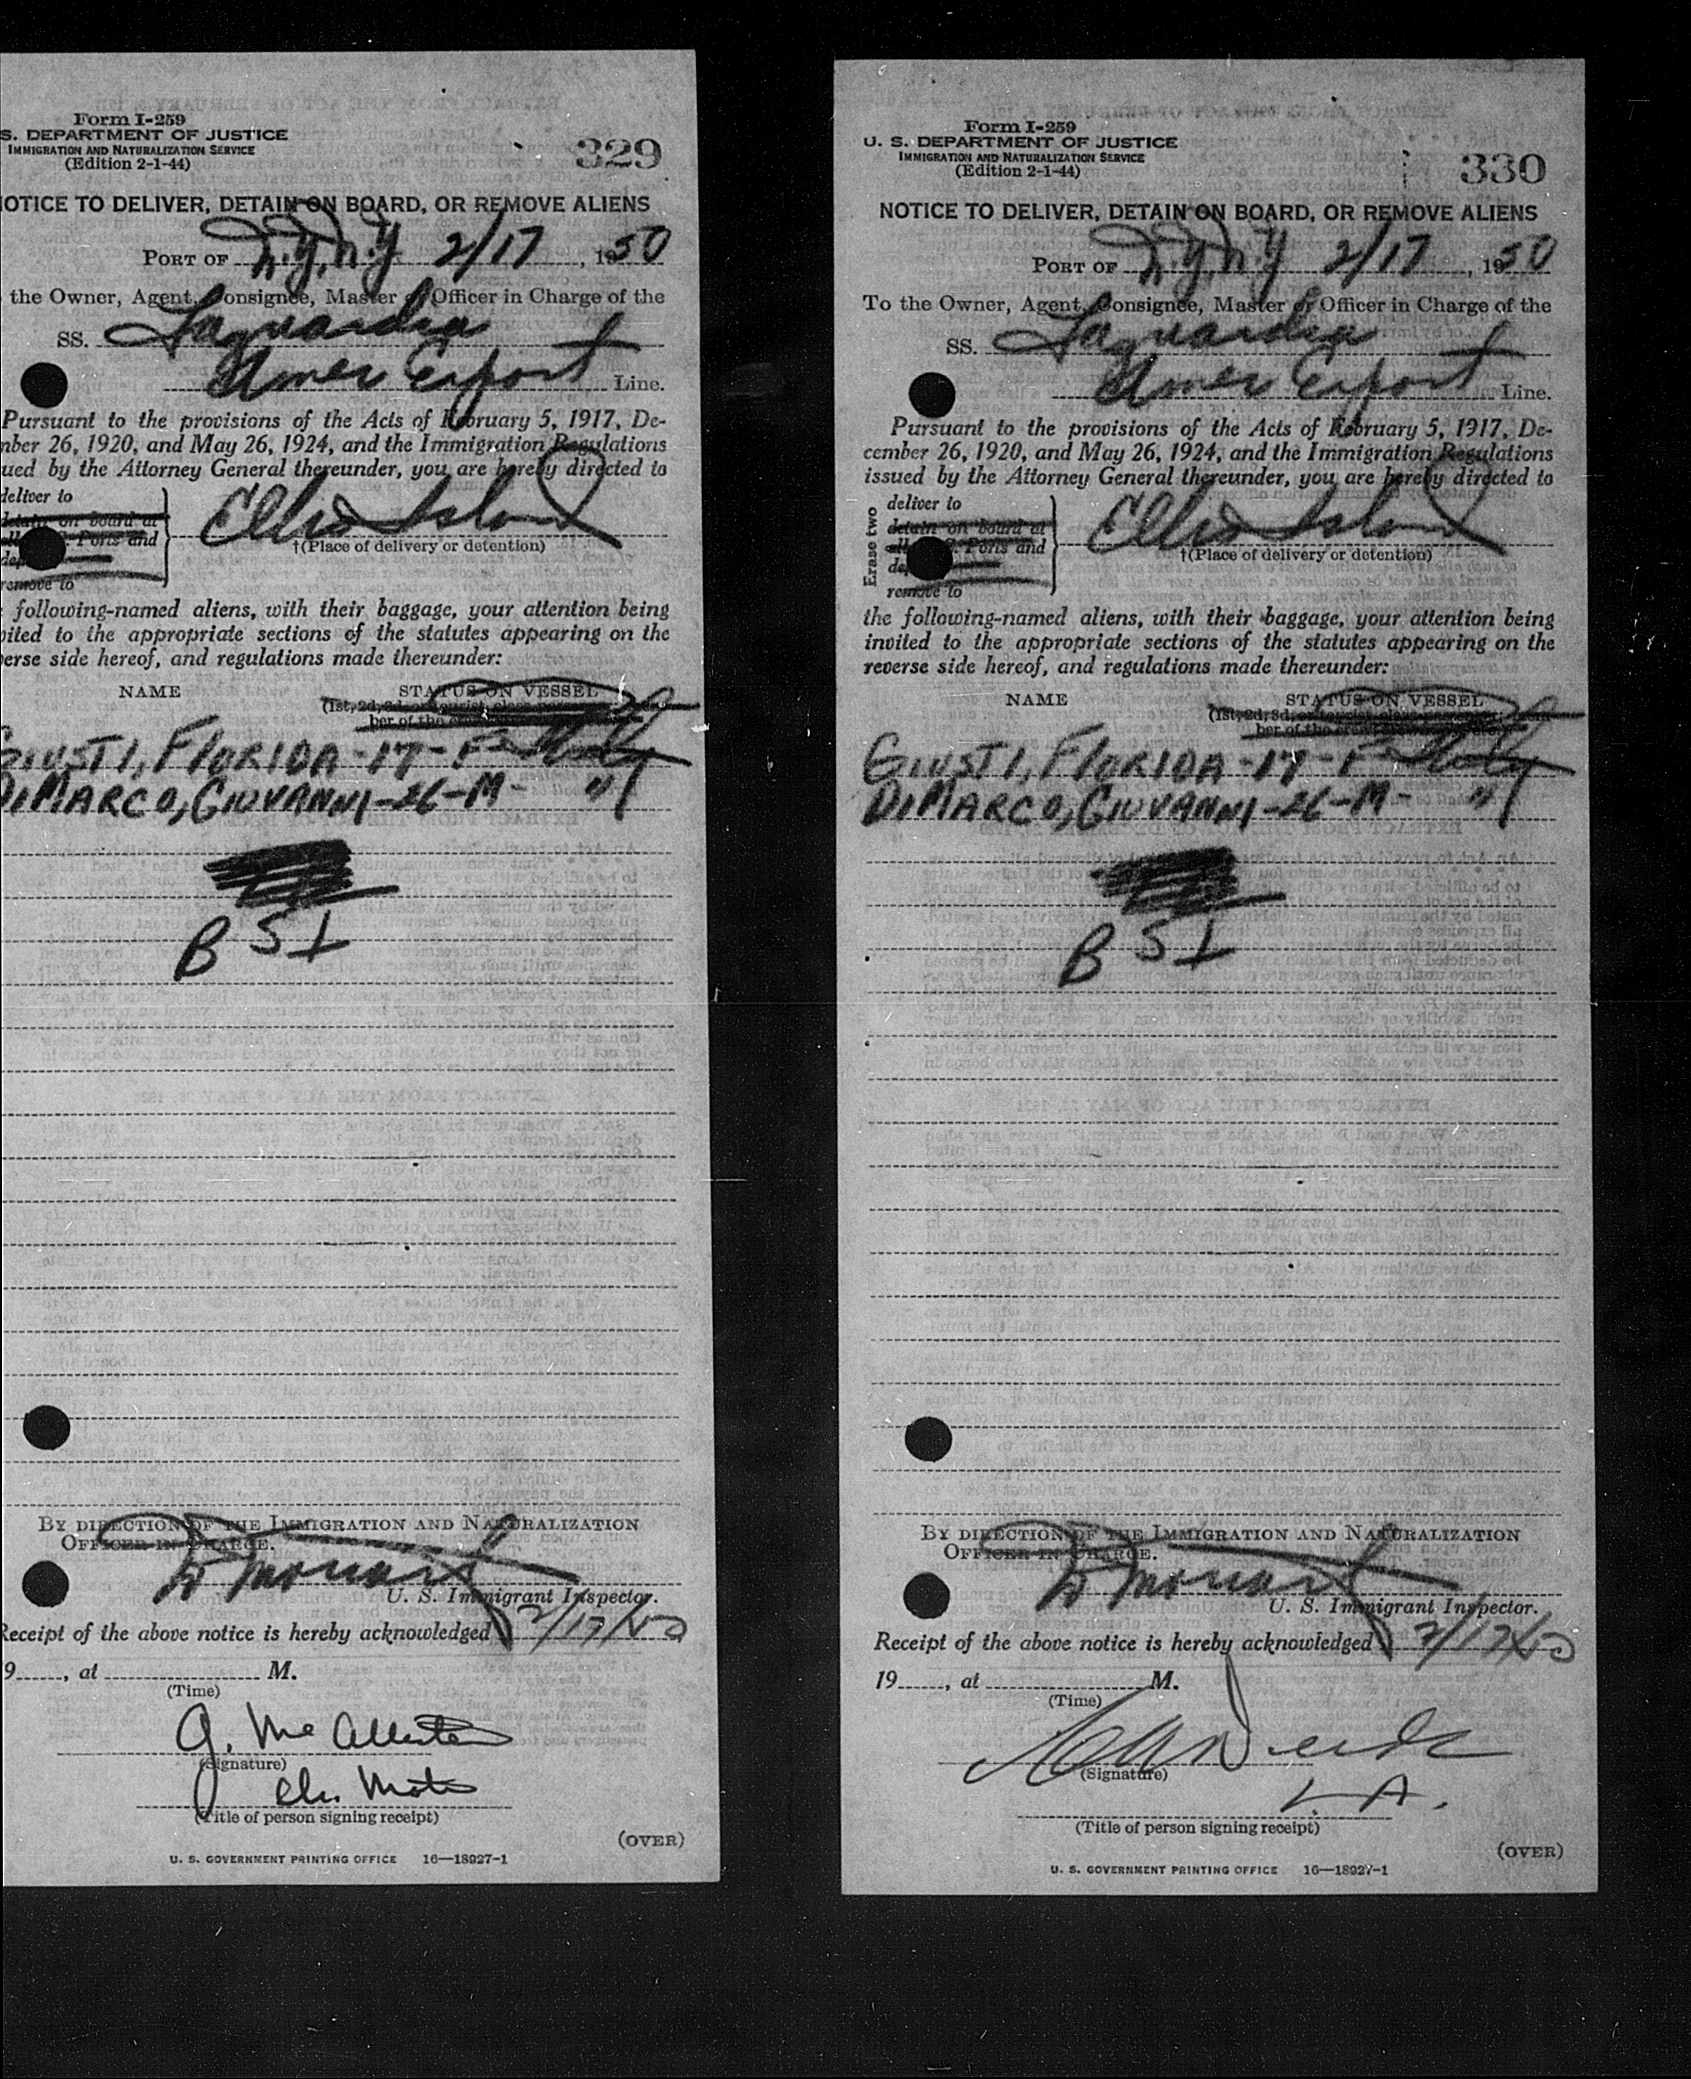 Form I-259
S. DEPARTMENT OF JUSTICE
IMMIGRATION AND NATURALIZATION SERVICE
(Edition 2-1-44)
329
OTICE TO DELIVER, DETAIN ON BOARD, OR REMOVE ALIENS
PORT OF N.Y. N.Y 2/17, 1950
the Owner, Agent, Consignee, Master or Officer in Charge of the
SS. Laguardia
Amer Export Line.
Pursuant to the provisions of the Acts of February 5, 1917, De-
mber 26, 1920, and May 26, 1924, and the Immigration Regulations
ued by the Attorney General thereunder, you are hereby directed to
deliver to
detain on board at
all U. S. Ports and
dep
remove to
Ellis Island
†(Place of delivery or detention)
following-named aliens, with their baggage, your attention being
vited to the appropriate sections of the statutes appearing on the
verse side hereof, and regulations made thereunder:
NAME STATUS ON VESSEL
(1st, 2d, 3d, or tourist class passenger,
ber of the crew
GIUSTI, FLORIDA - 17 - F - Italy
DIMARCO, GIOVANNI - 26 - M - "
B S I
BY DIRECTION OF THE IMMIGRATION AND NATURALIZATION
OFFICER IN CHARGE.
U. S. Immigrant Inspector.
Receipt of the above notice is hereby acknowledged 2/17/50
9......, at .................... M.
(Time)
G. McAllister
(Signature)
Ch. Mate
(Title of person signing receipt)
(OVER)
U. S. GOVERNMENT PRINTING OFFICE 16—18927-1
Form I-259
U. S. DEPARTMENT OF JUSTICE
IMMIGRATION AND NATURALIZATION SERVICE
(Edition 2-1-44)
330
NOTICE TO DELIVER, DETAIN ON BOARD, OR REMOVE ALIENS
PORT OF N.Y. N.Y 2/17, 1950
To the Owner, Agent, Consignee, Master or Officer in Charge of the
SS. Laguardia
Amer Export Line.
Pursuant to the provisions of the Acts of February 5, 1917, De-
cember 26, 1920, and May 26, 1924, and the Immigration Regulations
issued by the Attorney General thereunder, you are hereby directed to
Erase two
deliver to
detain on board at
all U. S. Ports and
dep
remove to
Ellis Island
†(Place of delivery or detention)
the following-named aliens, with their baggage, your attention being
invited to the appropriate sections of the statutes appearing on the
reverse side hereof, and regulations made thereunder:
NAME STATUS ON VESSEL
(1st, 2d, 3d, or tourist class passenger, mem-
ber of the crew
GIUSTI, FLORIDA - 17 - F - Italy
DIMARCO, GIOVANNI - 26 - M - "
B S I
BY DIRECTION OF THE IMMIGRATION AND NATURALIZATION
OFFICER IN CHARGE.
U. S. Immigrant Inspector.
Receipt of the above notice is hereby acknowledged 2/17/50
19......, at .................... M.
(Time)
(Signature)
(Title of person signing receipt)
(OVER)
U. S. GOVERNMENT PRINTING OFFICE 16—18927-1